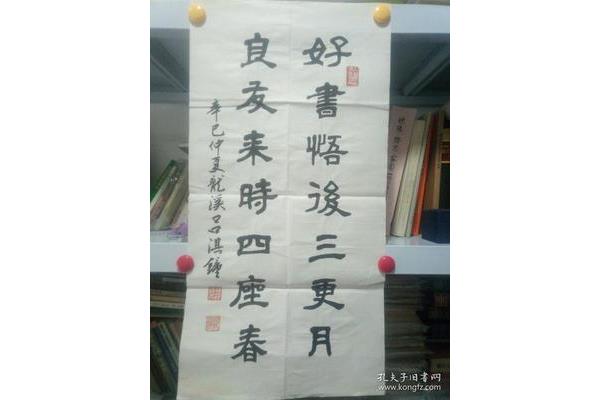 好書悟後三更月
良友来時四座春
辛巳仲夏龍溪吕淇鐘
孔夫子旧书网
www.kongfz.com